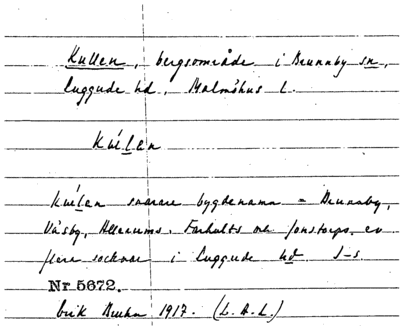 Kullen, bergsområde i Brunnby sn,
Luggude hd, Malmöhus l.
Kúlen
Kúlen snarare bygdenamn = Brunnby,
Väsby, Allerums, Farhults och Jonstorps, ev
flera socknar i Luggude hd. S-s.
Nr 5672.
Erik Bruhn 1917. (L.A.L.)